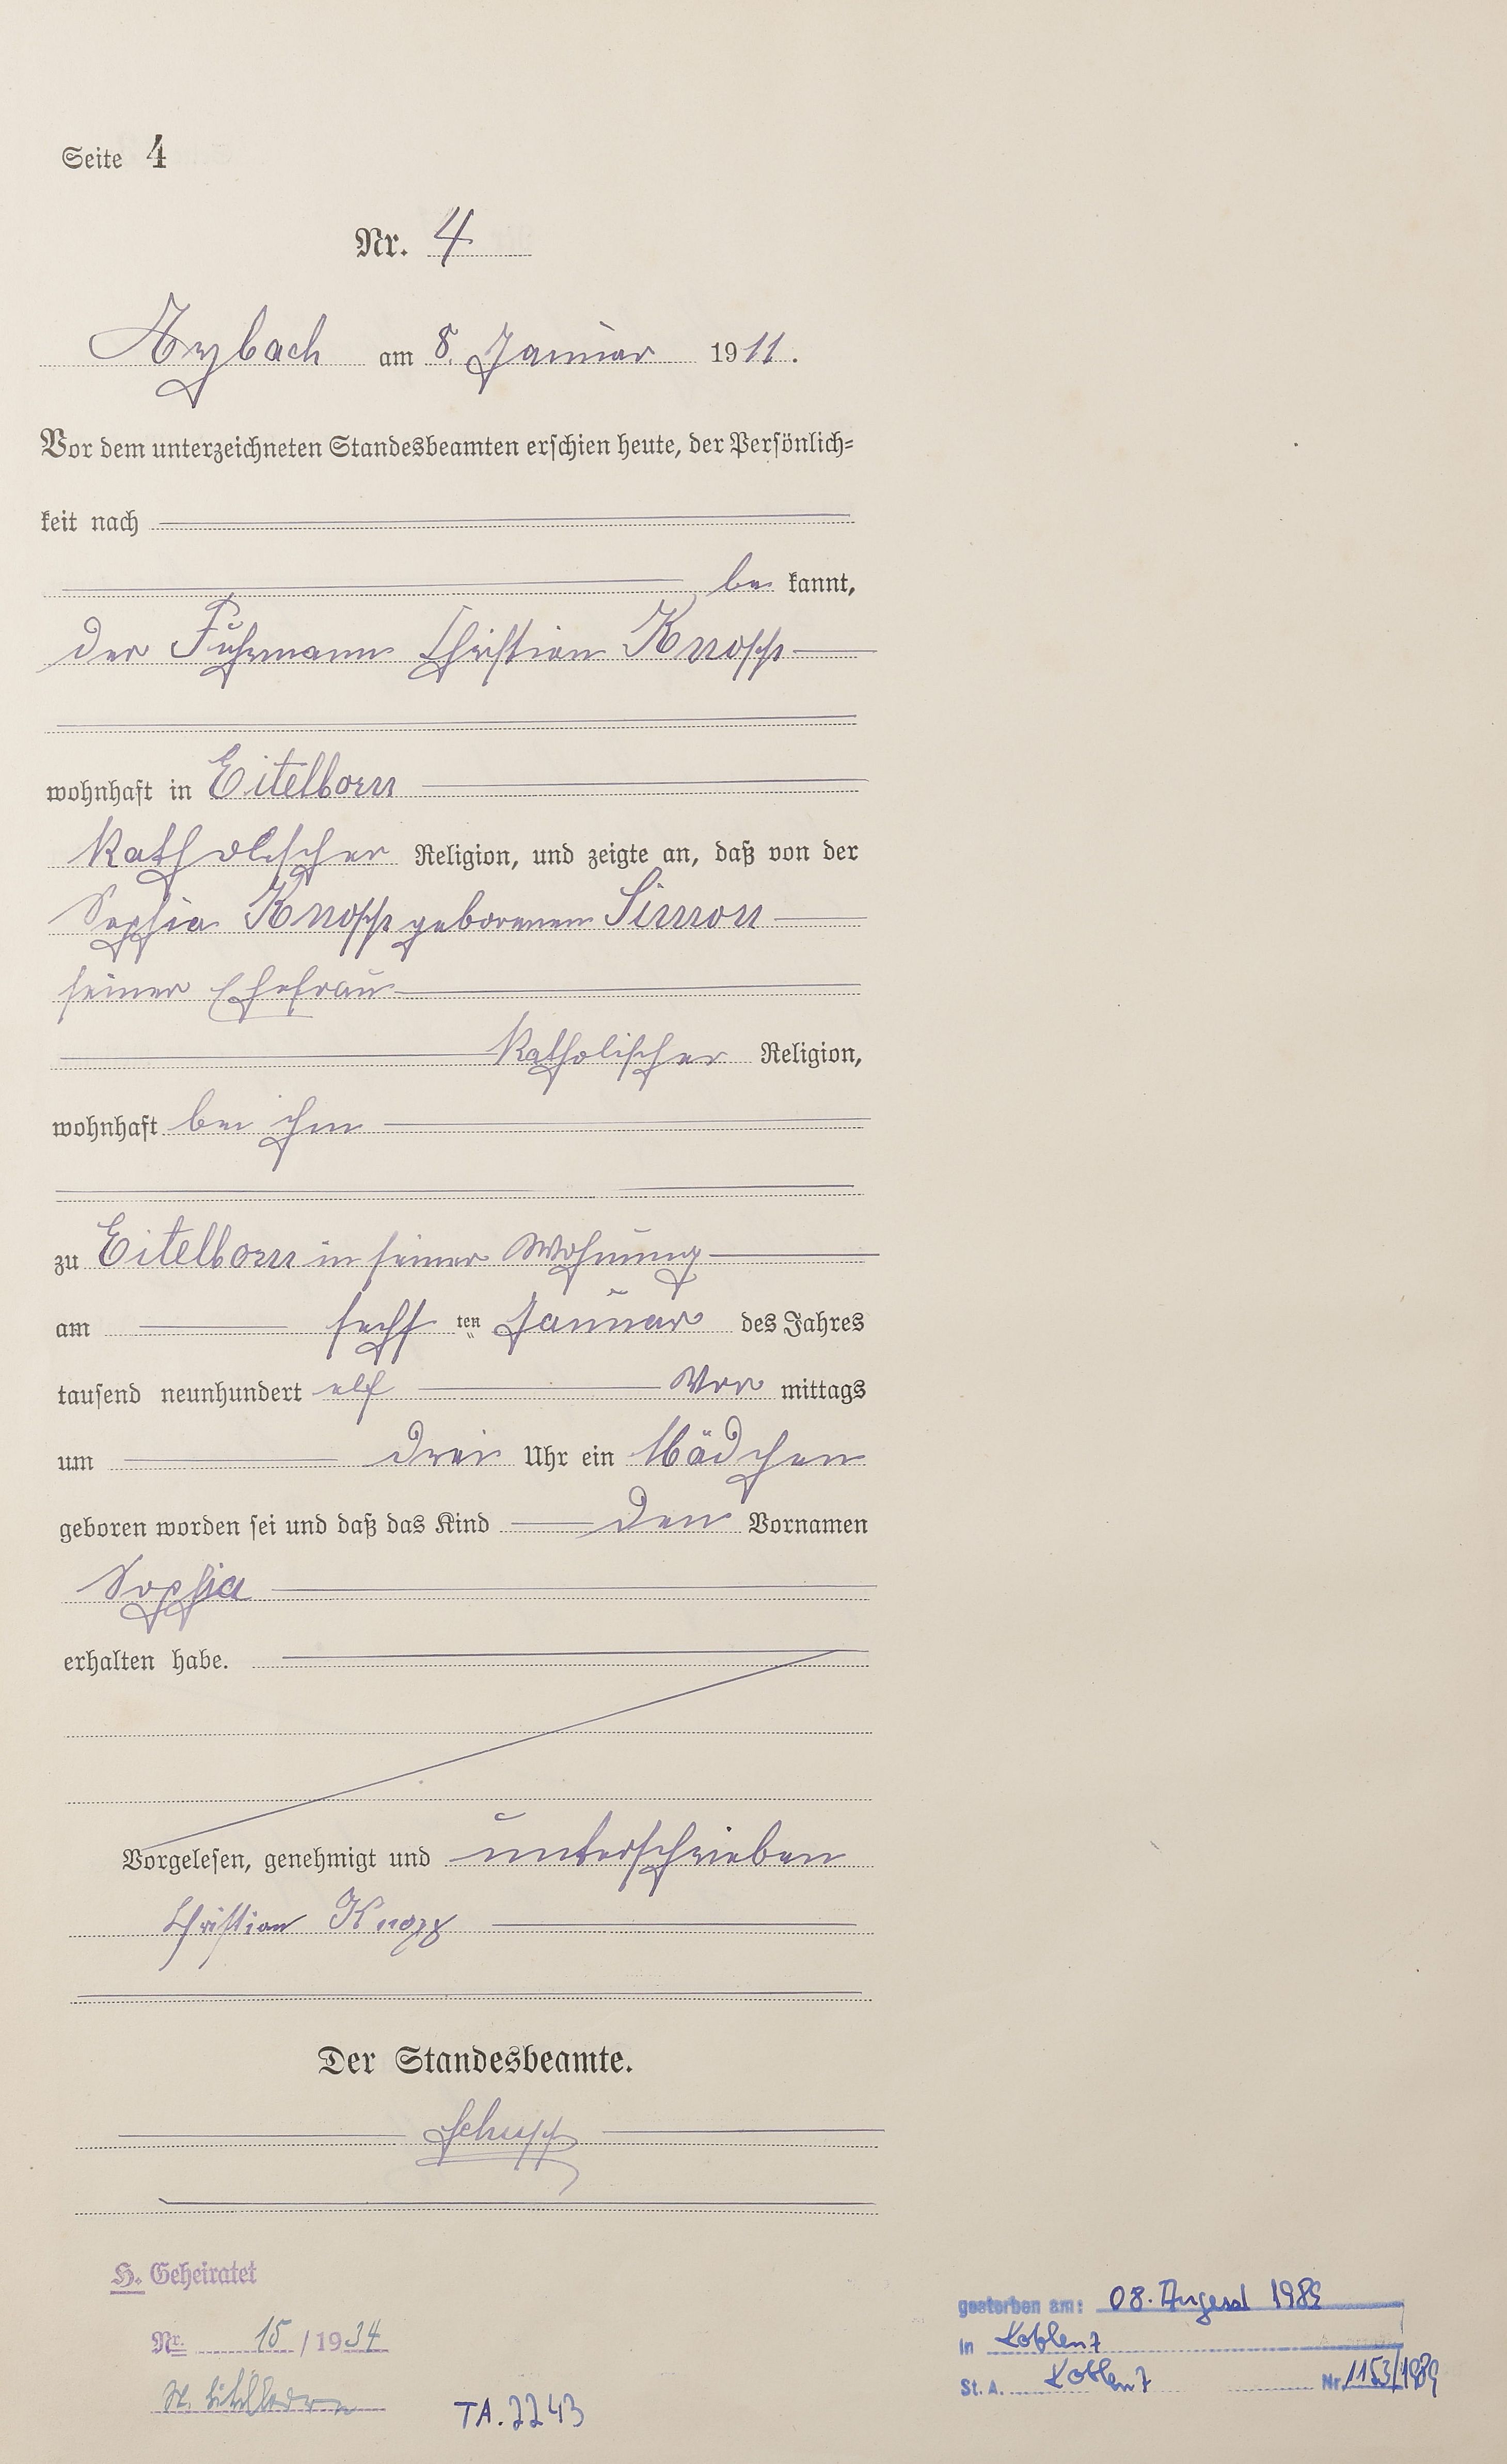 Seite 4
Nr. 4
Arzbach am 8. Januar 1911.
Vor dem unterzeichneten Standesbeamten erschien heute, der Persönlich=
keit nach
be kannt,
der Fuhrmann Christian Knopp
wohnhaft in Eitelborn
katholischer Religion, und zeigte an, daß von der
Sophia Knopp geborenen Simon
seiner Ehefrau
katholischer Religion,
wohnhaft bei ihm
zu Eitelborn in seiner Wohnung
am sechs ten Januar des Jahres
tausend neunhundert elf Vor mittags
um drei Uhr ein Mädchen
geboren worden sei und daß das Kind den Vornamen
Sophia
erhalten habe.
Vorgelesen, genehmigt und unterschrieben
Christian Knopp
Der Standesbeamte.
Schupp
H. Geheiratet
Nr. 15 / 1934
St. Eitelborn
TA. 2243
gestorben am: 08. August 1989
in Koblenz
St. A. Koblenz Nr. 1153/1989